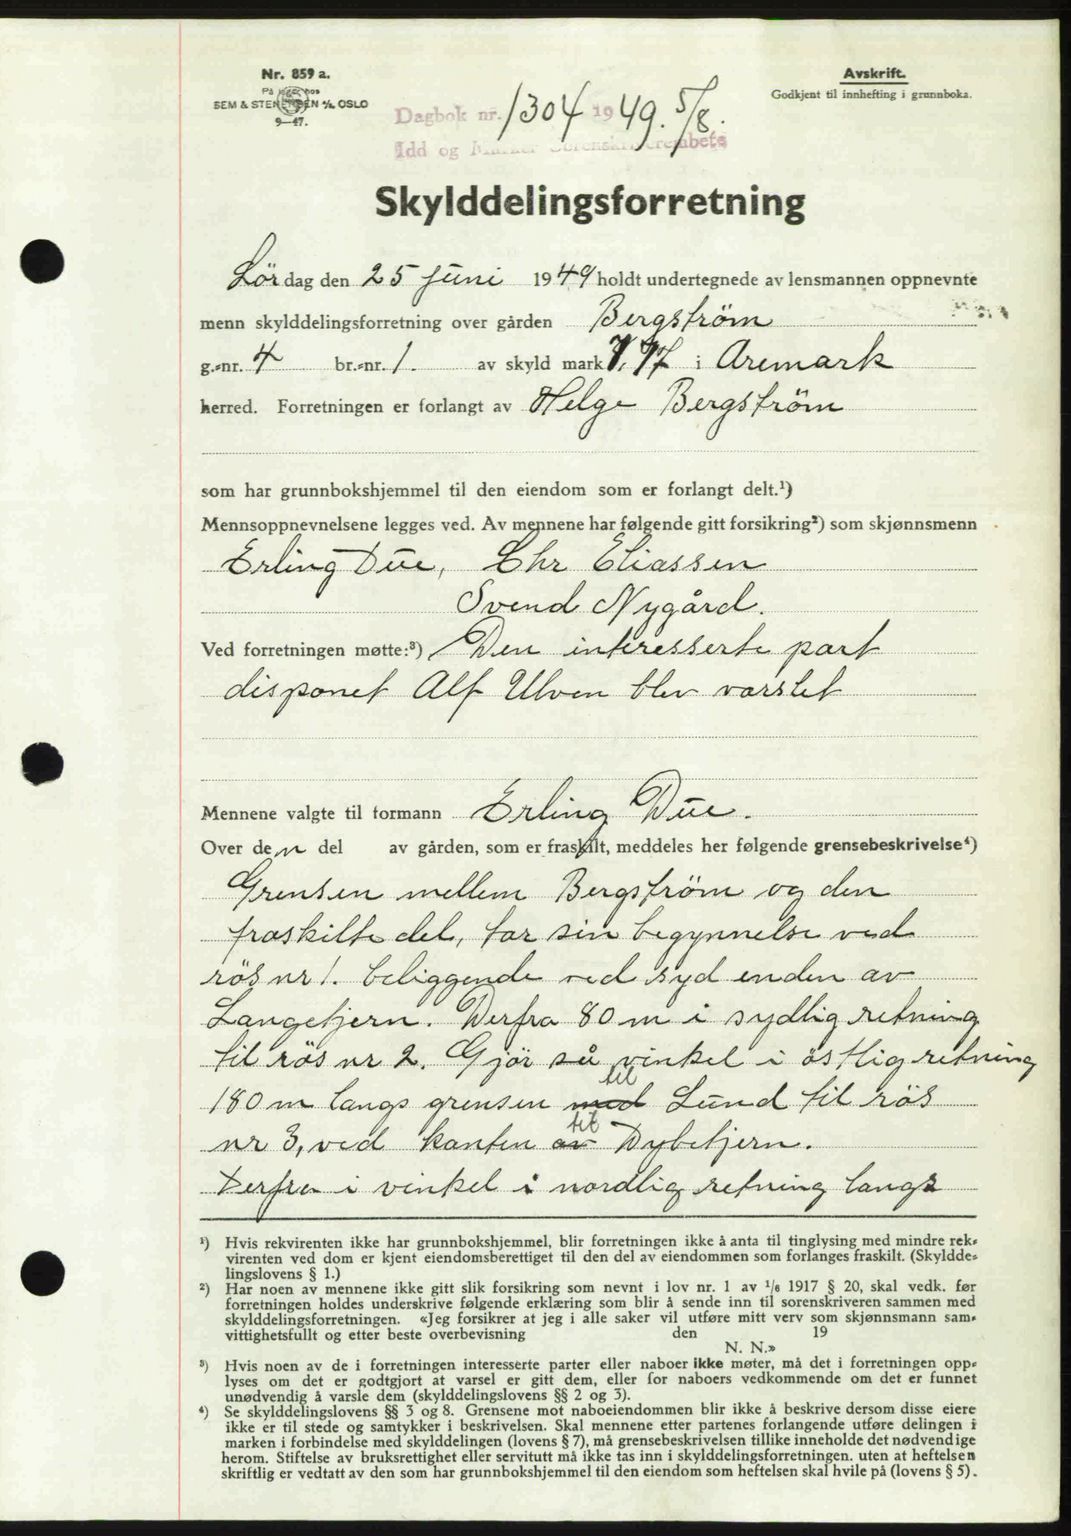 Nr. 859 a.
På lager hos
SEM & STENERSEN A/S OSLO
9—47.
Avskrift.
Godkjent til innhefting i grunnboka.
Dagbok nr. 1304 1949. 5/8.
Idd og Marker Sorenskriverembete
Skylddelingsforretning
Lördag den 25 juni 1949 holdt undertegnede av lensmannen oppnevnte
menn skylddelingsforretning over gården Bergström
g.-nr. 4 br.-nr. 1. av skyld mark 7,97 i Aremark
herred. Forretningen er forlangt av Helge Bergström
som har grunnbokshjemmel til den eiendom som er forlangt delt.¹)
Mennsoppnevnelsene legges ved. Av mennene har følgende gitt forsikring²) som skjønnsmenn
Erling Due, Chr Eliassen
Svend Nygård.
Ved forretningen møtte:³) Den interesserte part
disponet Alf Ulven blev varslet
Mennene valgte til formann Erling Due.
Over den del av gården, som er fraskilt, meddeles her følgende grensebeskrivelse⁴)
Grensen mellem Bergström og den
fraskilte del, tar sin begynnelse ved
rös nr 1. beliggende ved syd enden av
Langetjern. Derfra 80 m i sydlig retning
til rös nr 2. Gjör så vinkel i östlig retning
180 m langs grensen med til Lund til rös
nr 3, ved kanten av til Dybetjern.
Derfra i vinkel i nordlig retning langs
¹) Hvis rekvirenten ikke har grunnbokshjemmel, blir forretningen ikke å anta til tinglysing med mindre rek-
virenten ved dom er kjent eiendomsberettiget til den del av eiendommen som forlanges fraskilt. (Skyldde-
lingslovens § 1.)
²) Har noen av mennene ikke gitt slik forsikring som nevnt i lov nr. 1 av 1/6 1917 § 20, skal vedk. før
forretningen holdes underskrive følgende erklæring som blir å sende inn til sorenskriveren sammen med
skylddelingsforretningen. «Jeg forsikrer at jeg i alle saker vil utføre mitt verv som skjønnsmann sam-
vittighetsfullt og etter beste overbevisning den 19
N. N.»
³) Hvis noen av de i forretningen interesserte parter eller naboer ikke møter, må det i forretningen opp-
lyses om det er godtgjort at varsel er gitt dem, eller for naboers vedkommende om det er funnet
unødvendig å varsle dem (skylddelingslovens §§ 2 og 3).
⁴) Se skylddelingslovens §§ 3 og 8. Grensene mot naboeiendommen blir ikke å beskrive dersom disse eiere
ikke er til stede og samtykker i beskrivelsen. Skal mennene etter partenes forlangende utføre delingen i
marken i forbindelse med skylddelingen (lovens § 7), må grensebeskrivelsen tillike inneholde det nødvendige
herom. Stiftelse av bruksrettighet eller servitutt må ikke tas inn i skylddelingsforretningen. uten at heftelsen
skriftlig er vedtatt av den som har grunnbokshjemmel til den eiendom som heftelsen skal hvile på (lovens § 5).